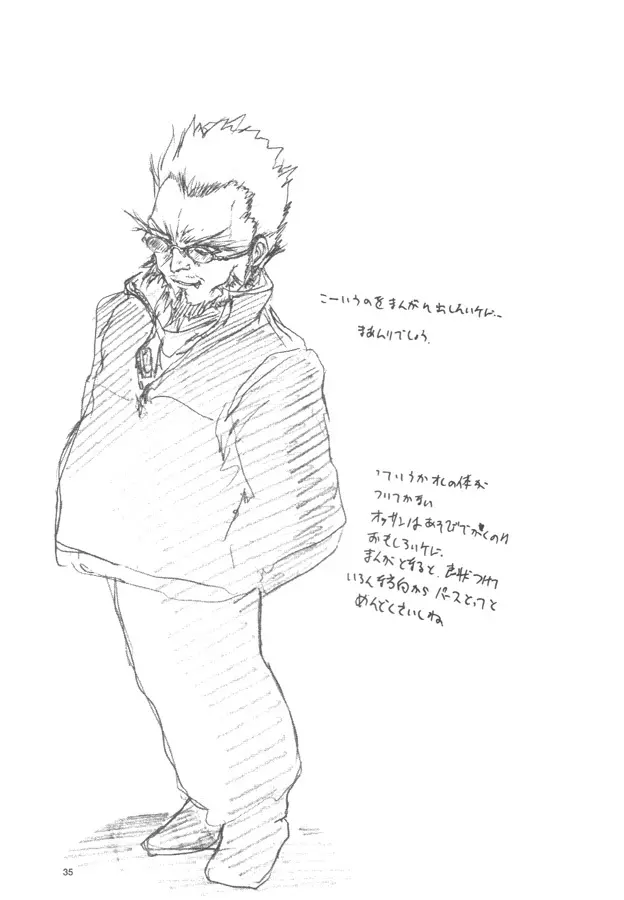 こーいうのをまんがに出したいけど…
まあムリでしょう。
っていうかオレの体が
ついてかない
オッサンはあそびでかくのは
おもしろいケド、
まんがとなると、
いろんな方向からパースとって
めんどくさいしね
35